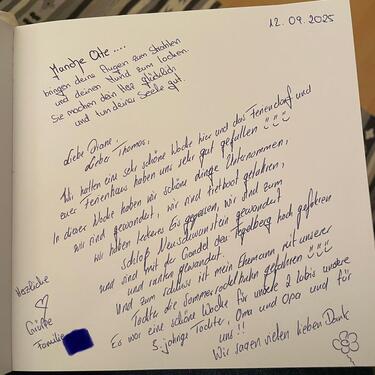 12.09.2025
Manche Orte....
bringen deine Augen zum Strahlen
und deinen Mund zum Lachen.
Sie machen dein Herz glücklich
und tun deiner Seele gut.
Liebe Diane,
Lieber Thomas,
Wir hatten eine sehr schöne Woche hier und das Feriendorf und
euer Ferienhaus haben uns sehr gut gefallen
In dieser Woche haben wir schöne dinge Unternommen,
wir sind gewandert, wir sind Tretboot gefahren,
wir haben leckeres Eis gegessen, wir sind zum
Schloß Neuschwanstein gewandert
und sind mit der Gondel des Tegelberg hoch gefahren
und runter gewandert.
Und zum schluss ist mein Ehemann mit unserer
Tochter die Sommerrodelbahn gefahren
Es war eine schöne Woche für unsere
5. jährige Tochter, Oma und Opa und für
uns!!
Wir sagen vielen lieben Dank
Herzliche
Grüße
Familie